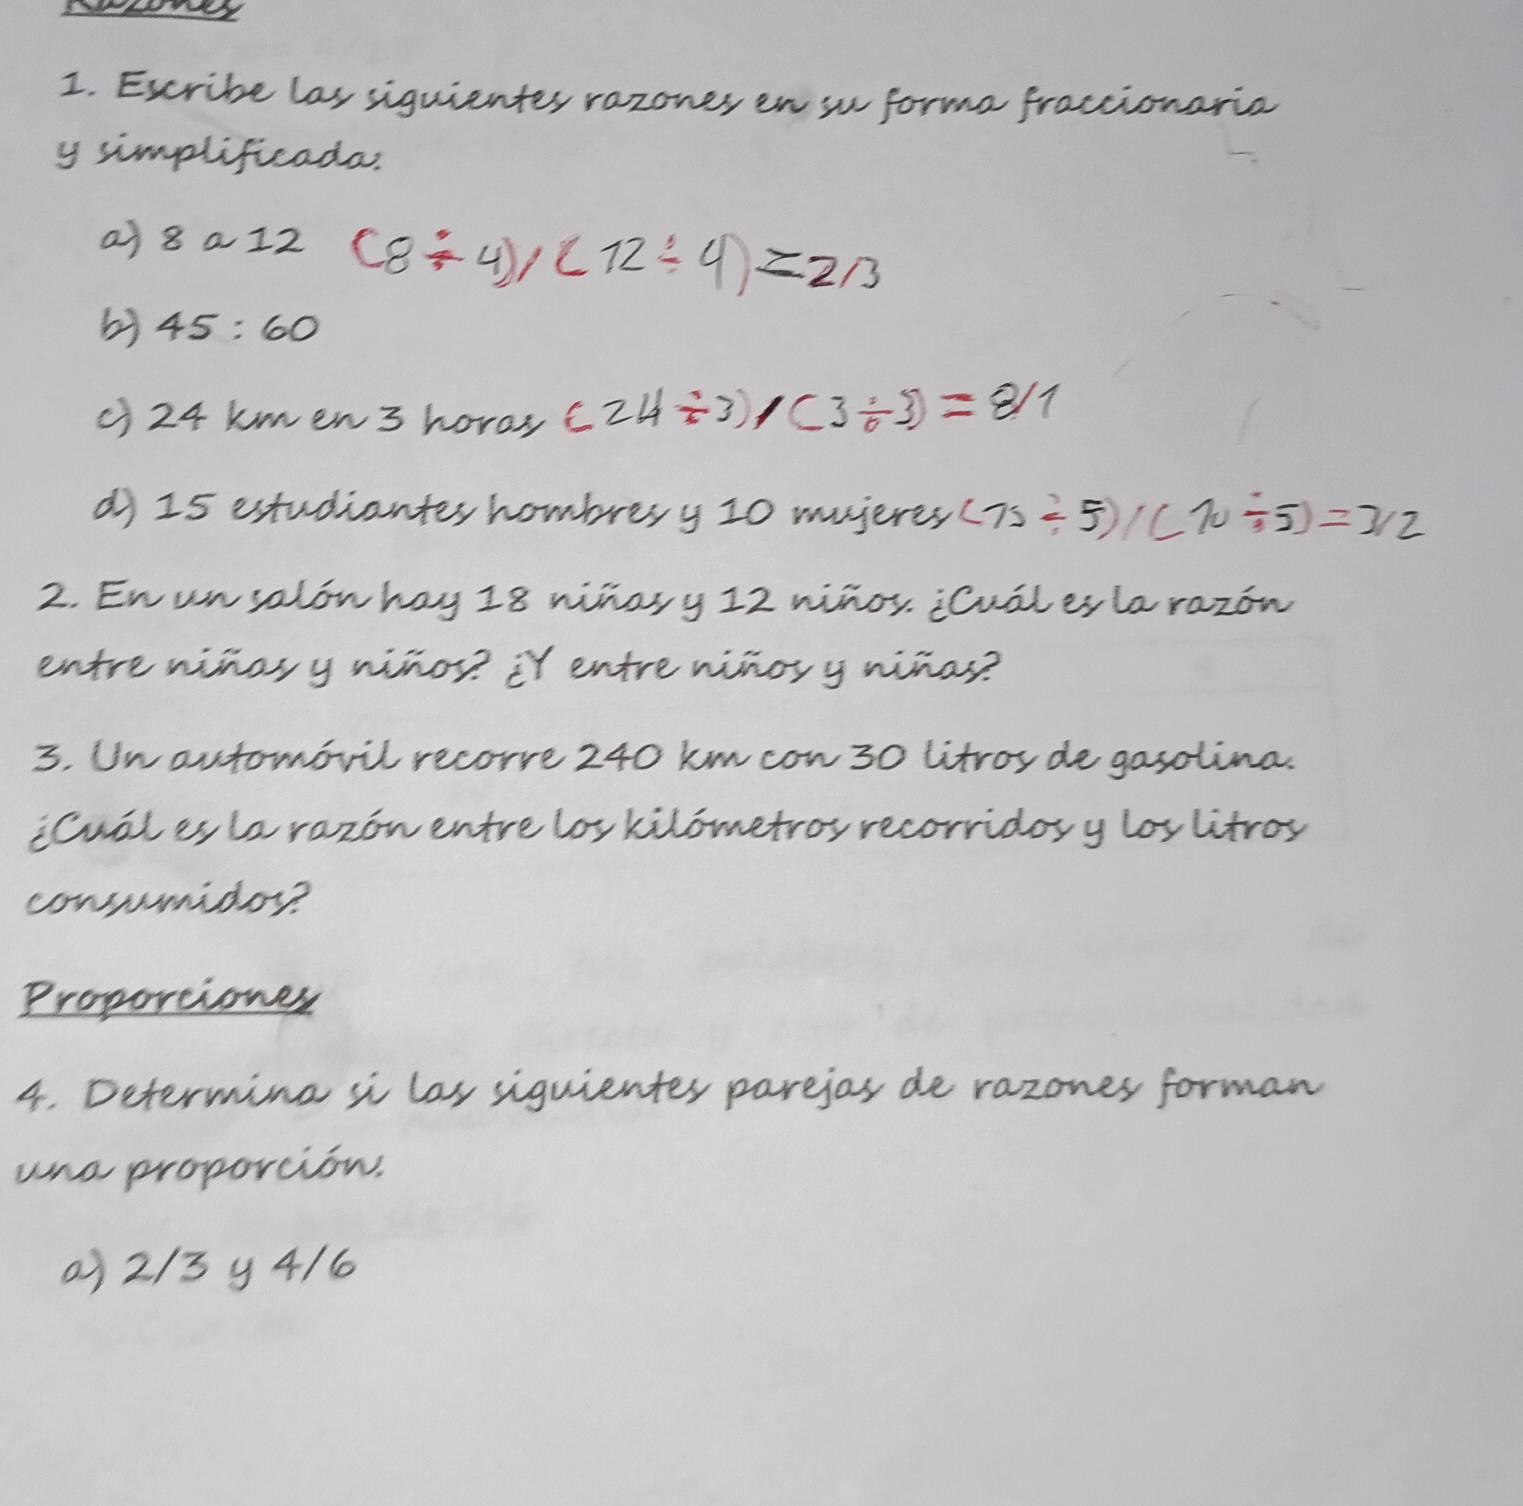 Razones
1. Escribe las siguientes razones en su forma fraccionaria
y simplificada:
a) 8 a 12 (8 ÷ 4) / (12 ÷ 4) = 2/3
b) 45 : 60
c) 24 km en 3 horas (24 ÷ 3) / (3 ÷ 3) = 8/1
d) 15 estudiantes hombres y 10 mujeres (15 ÷ 5) / (10 ÷ 5) = 3/2
2. En un salón hay 18 niñas y 12 niños. ¿Cuál es la razón
entre niñas y niños? ¿Y entre niños y niñas?
3. Un automóvil recorre 240 km con 30 litros de gasolina.
¿Cuál es la razón entre los kilómetros recorridos y los litros
consumidos?
Proporciones
4. Determina si las siguientes parejas de razones forman
una proporción:
a) 2/3 y 4/6